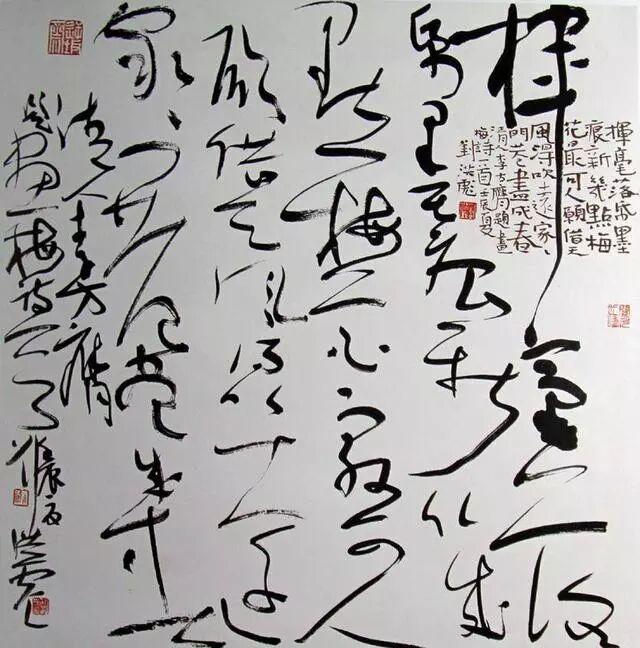 揮毫落
紙墨痕新幾
點梅花最可人
願借天風得吹遠
家〻門巷盡成春
清人李方膺
題畫梅詩一首 壬辰夏 洪彪
揮毫落紙墨
痕新幾點梅
花最可人願借天
風得吹遠家〻
門巷盡成春
清人李方膺題畫
梅詩一首壬辰夏
劉洪彪